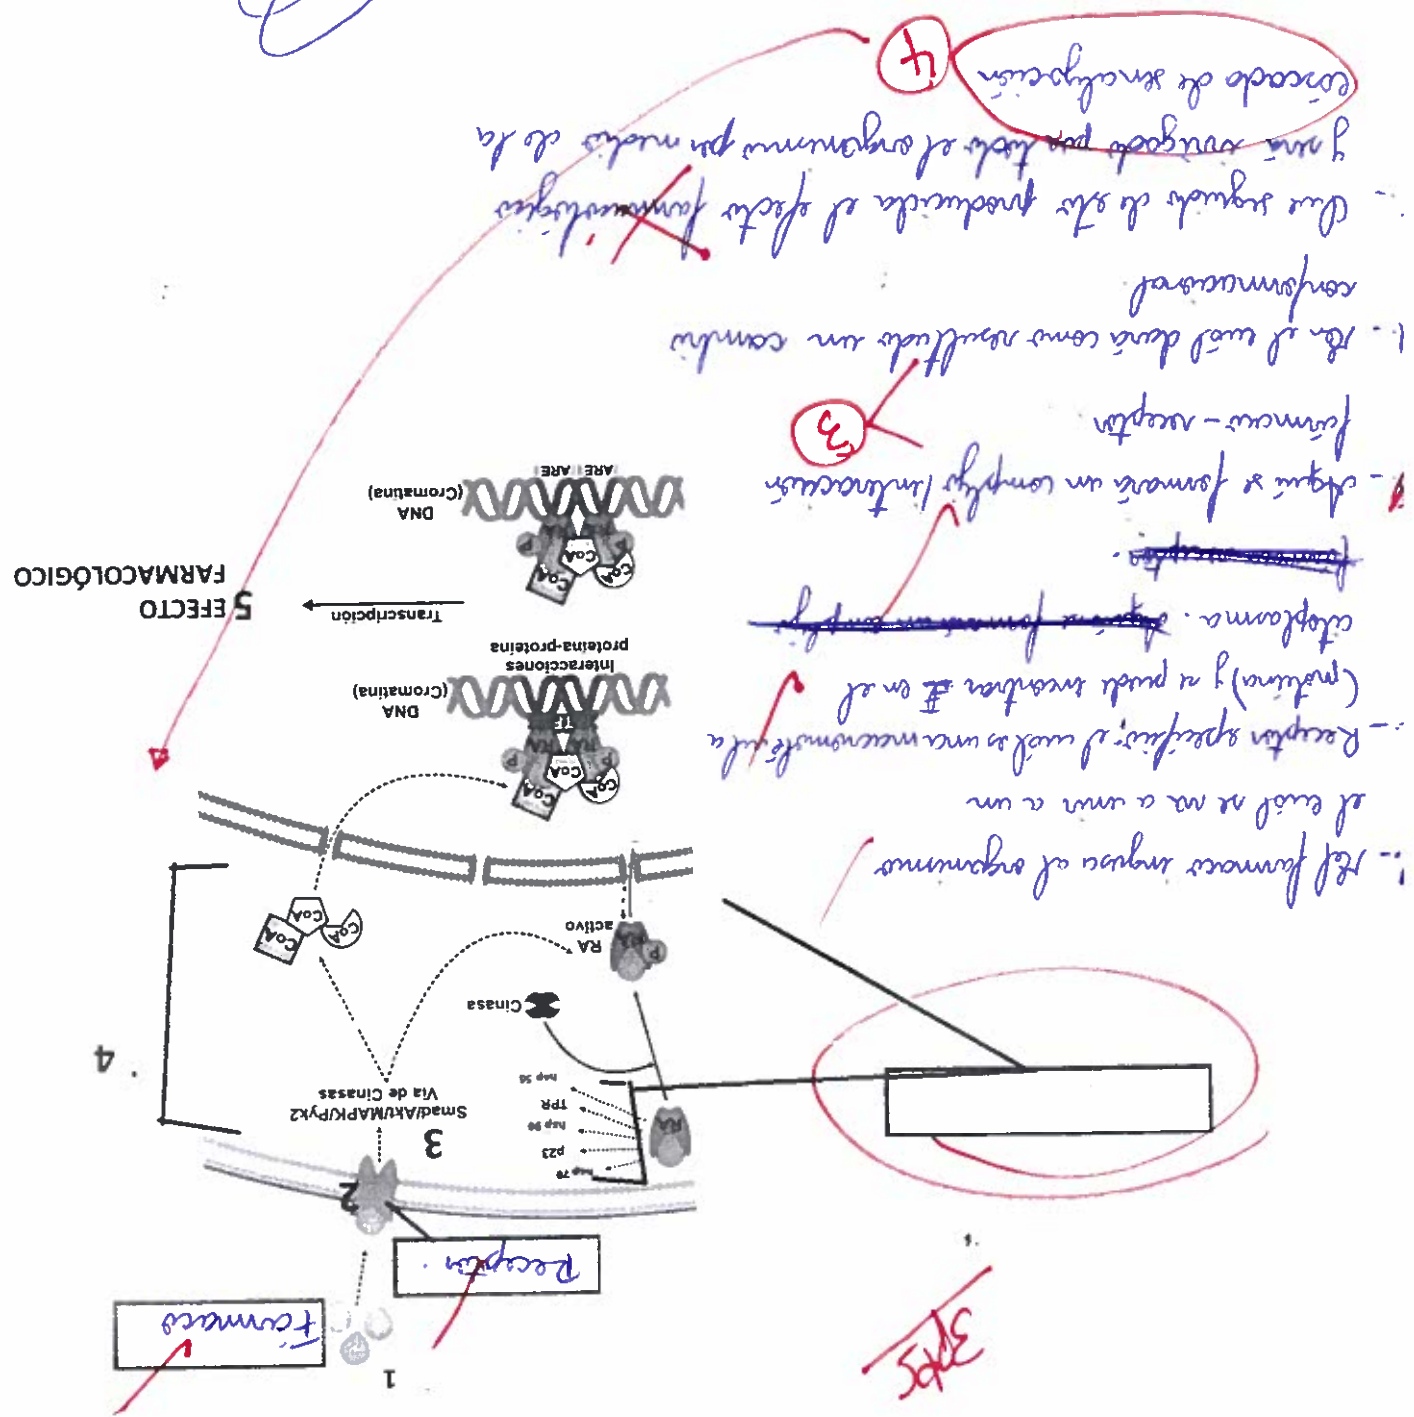 3pts
1
Fármaco
Receptor.
2
3
Smad/Akt/MAPK/Pyk2
Vía de Cinasas
4
hsp 70
p23
hsp 90
TPR
hsp 56
RA
Cinasa
RA
activo
RA
P
CoA
CoA
CoA
CoA
CoA
CoA
P
P
TF
DNA
(Cromatina)
Interacciones
proteína-proteína
Transcripción
5 EFECTO
FARMACOLÓGICO
CoA
CoA
CoA
P
P
DNA
(Cromatina)
ARE ARE
1.- El farmaco ingresa al organismo
el cuál se va a unir a un
- Receptor específico, el cuál es una macromolécula
(proteína) y se puede encontrar en el
citoplasma. Aquí se formará un complejo
fármaco-receptor.
- Aquí se formará un complejo/interacción
fármaco-receptor
3
- En el cuál dará como resultado un cambio
conformacional
- Que seguido de esto producirá el efecto farmacológico
y será por todo el organismo por medio de la
cascada de señalización
4